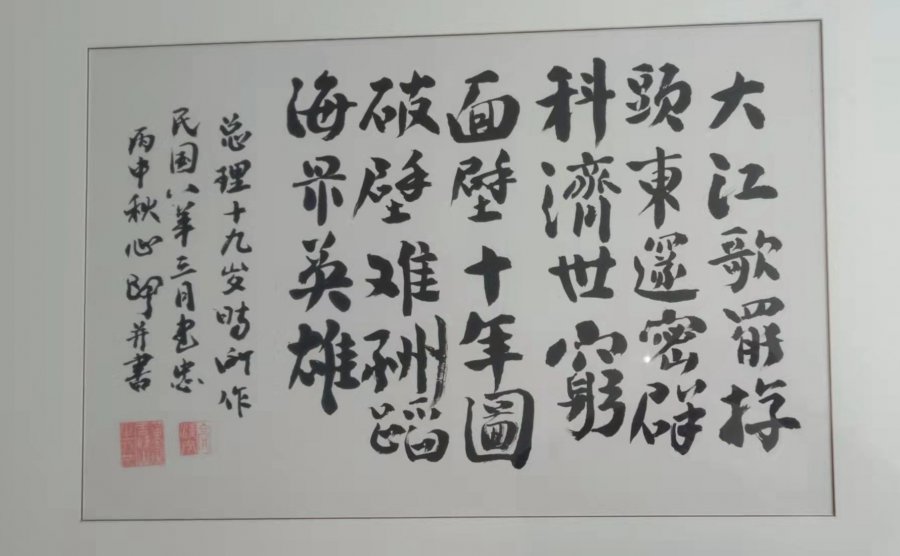 大江歌罷掉
頭東邃密群
科濟世窮
面壁十年圖
破壁难酬蹈
海界英雄
总理十九岁時所作
民国八年三月
丙申秋心并書